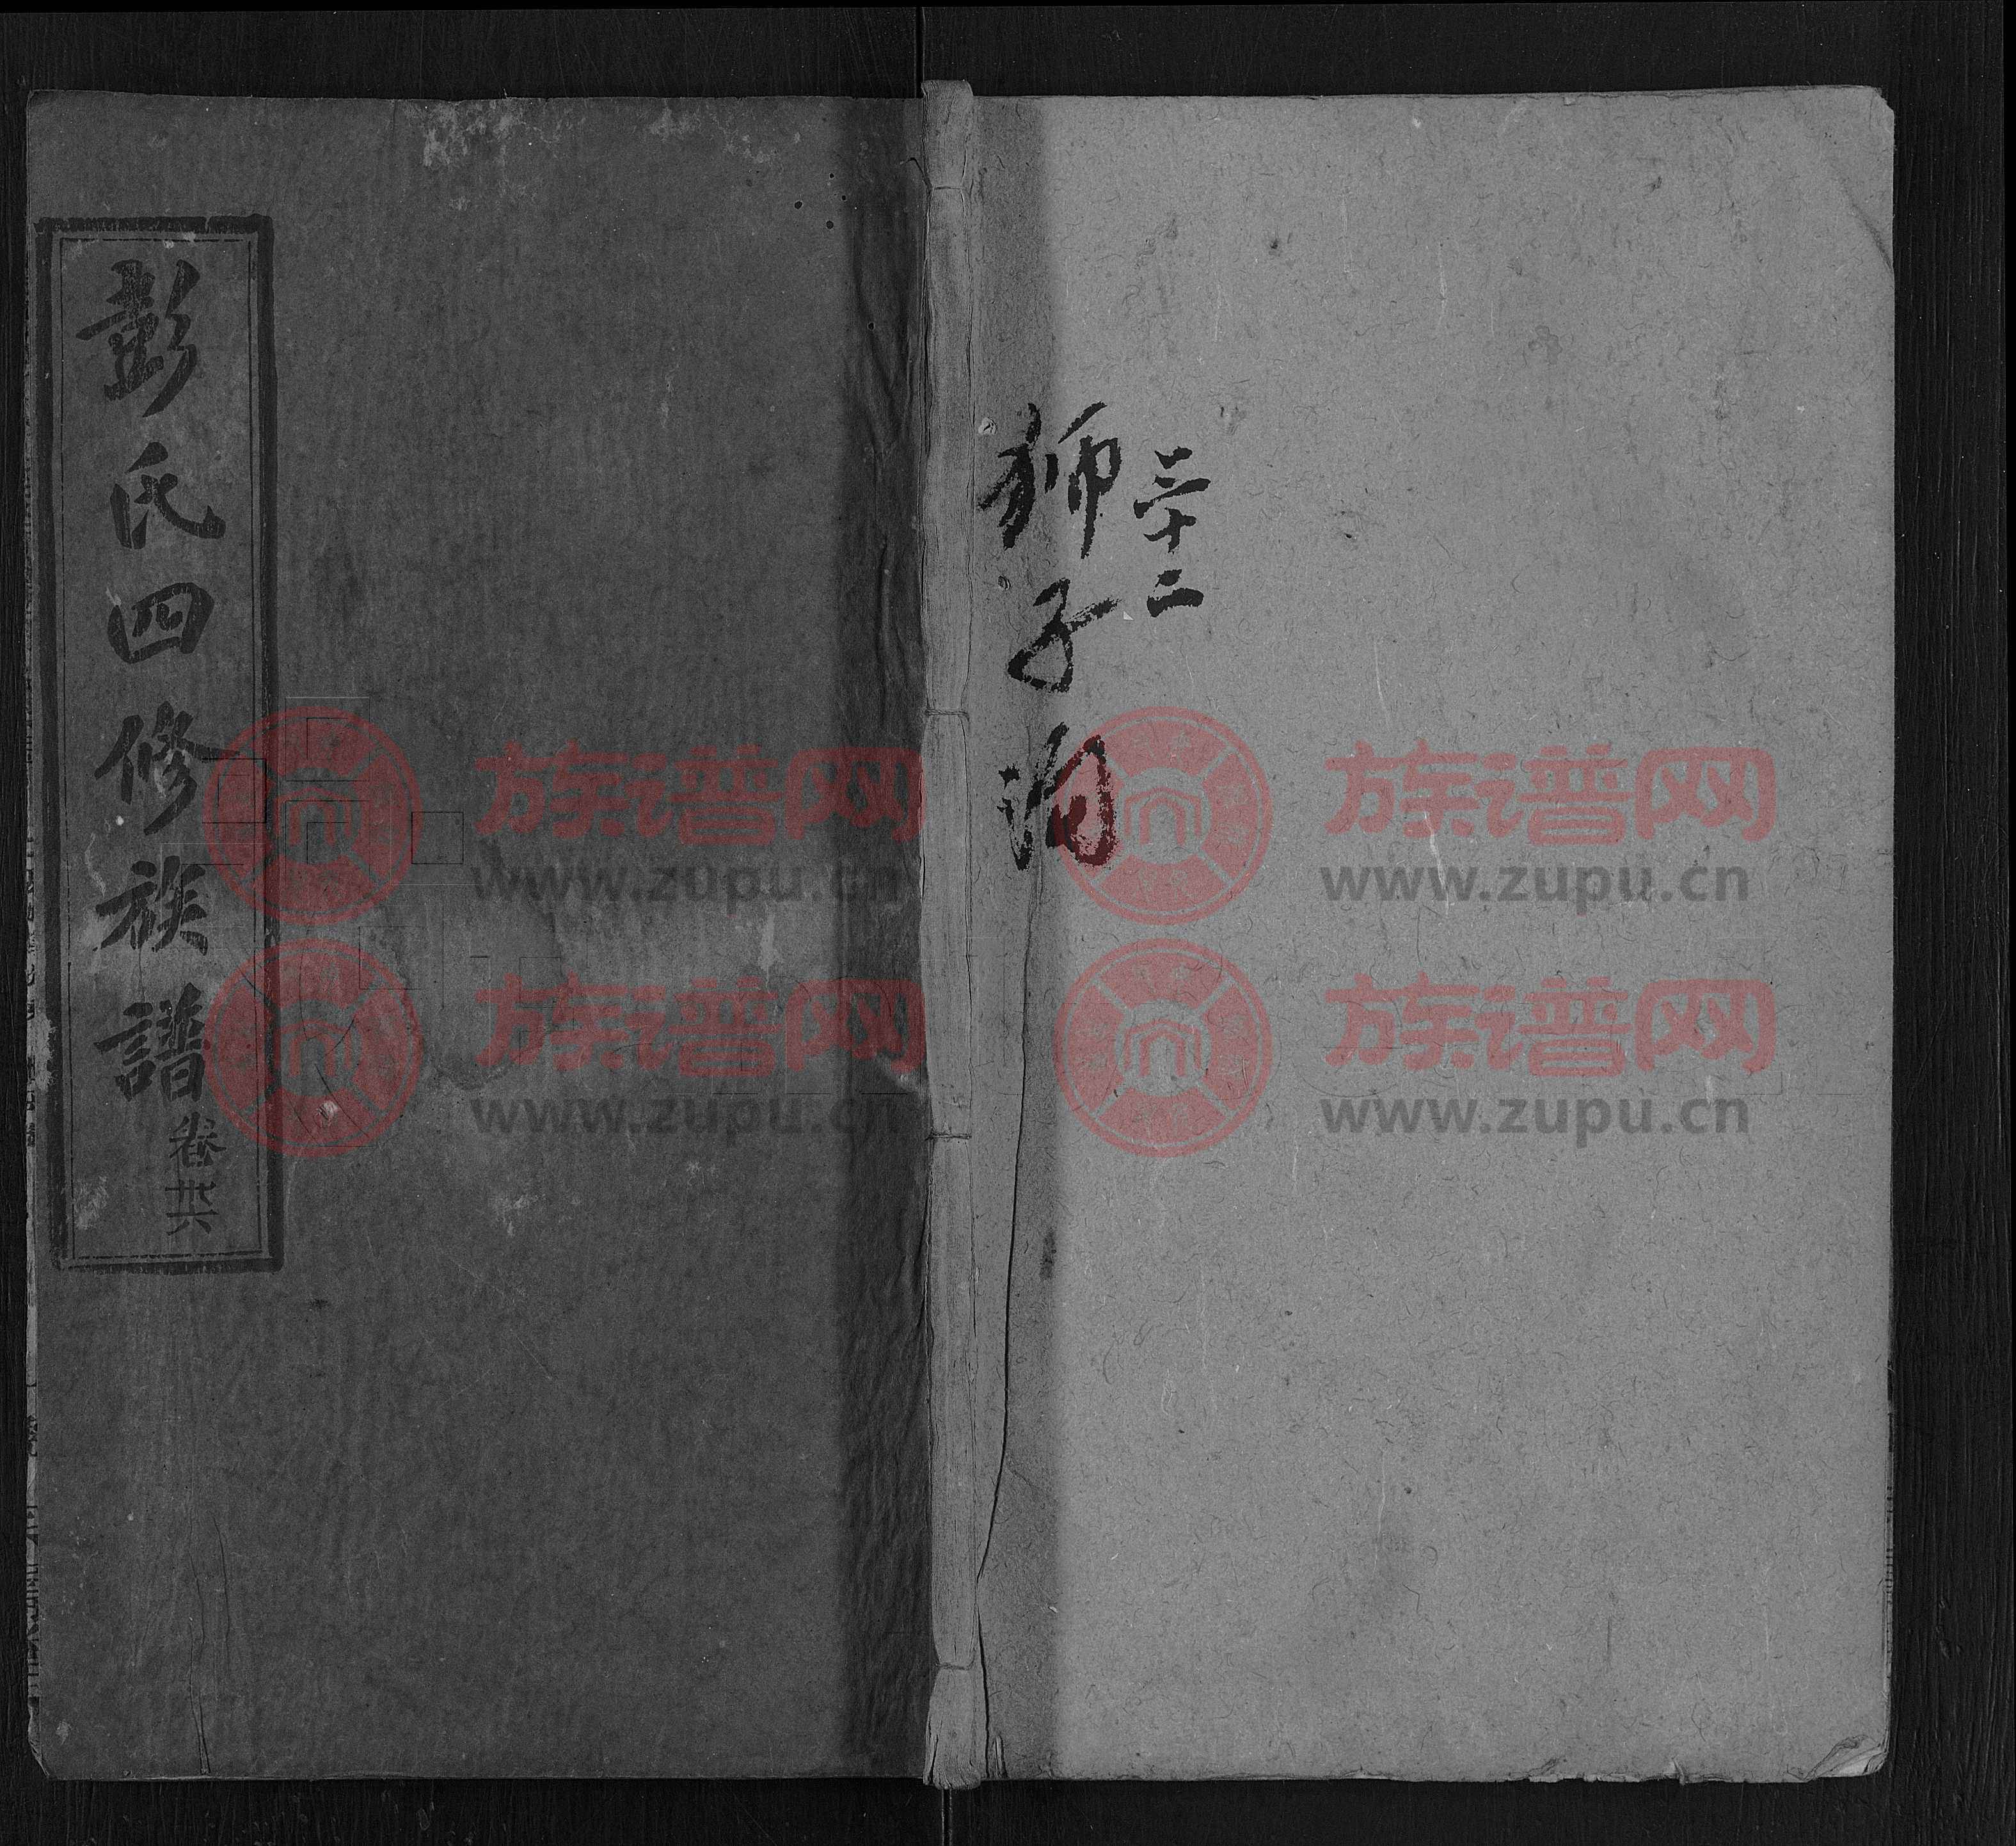 三十二
狮子
彭氏四修族譜
卷卅六
族谱网
www.zupu.cn
族谱网
www.zupu.cn
族谱网
www.zupu.cn
族谱网
www.zupu.cn